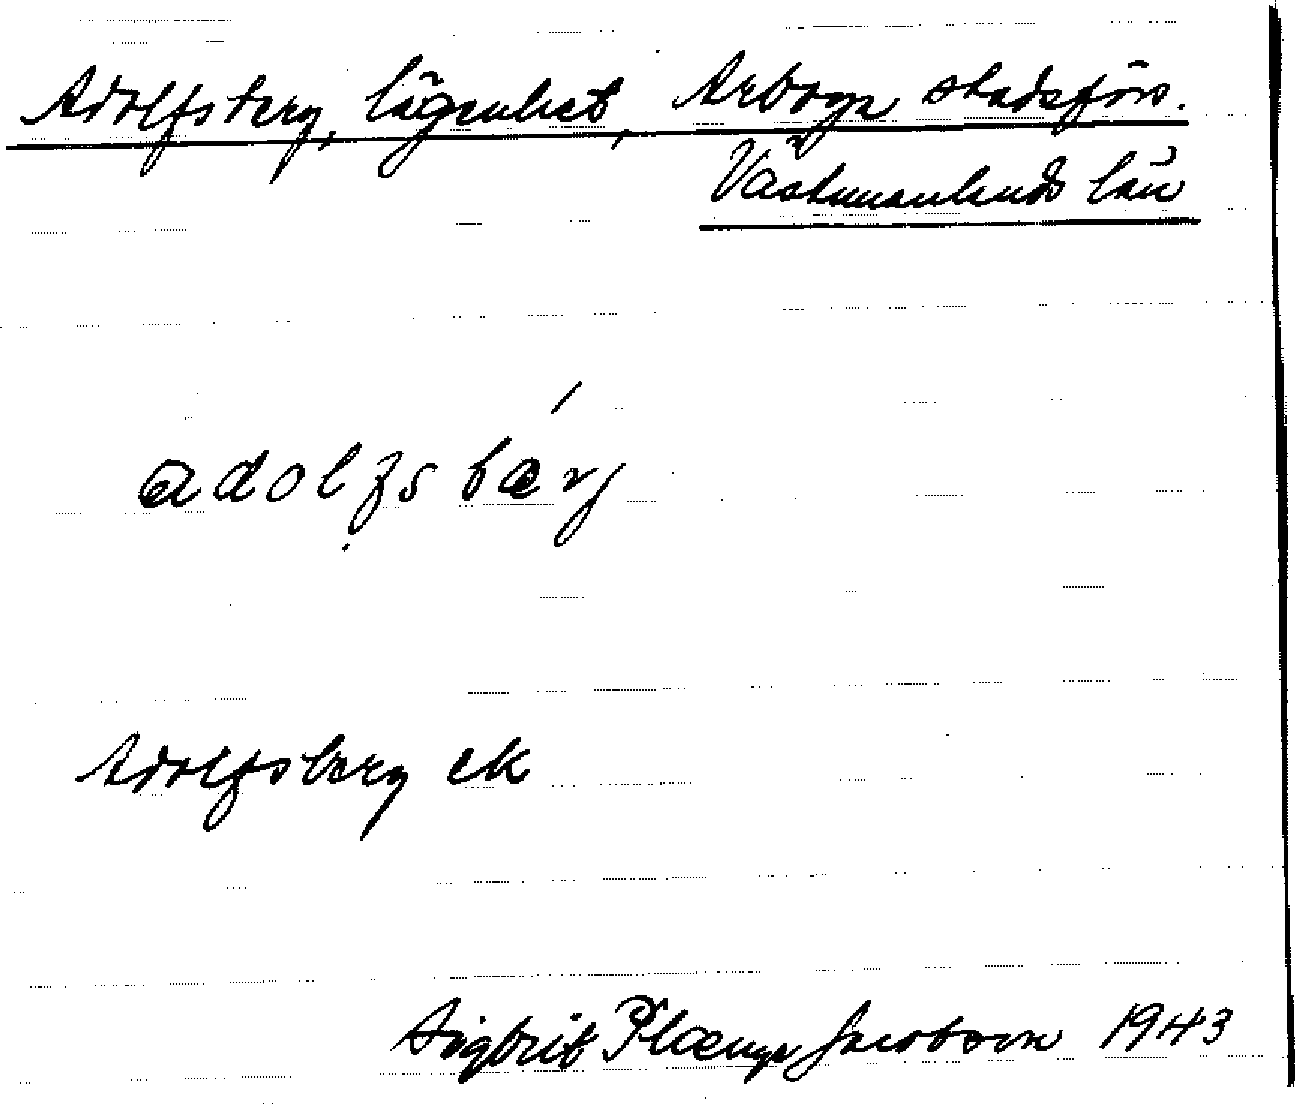 Adolfsberg, lägenhet, Arboga stadsförs.
Västmanlands län
adolfsbærj
Adolfsberg ek
Sigbrit Plænge Jacobson 1943